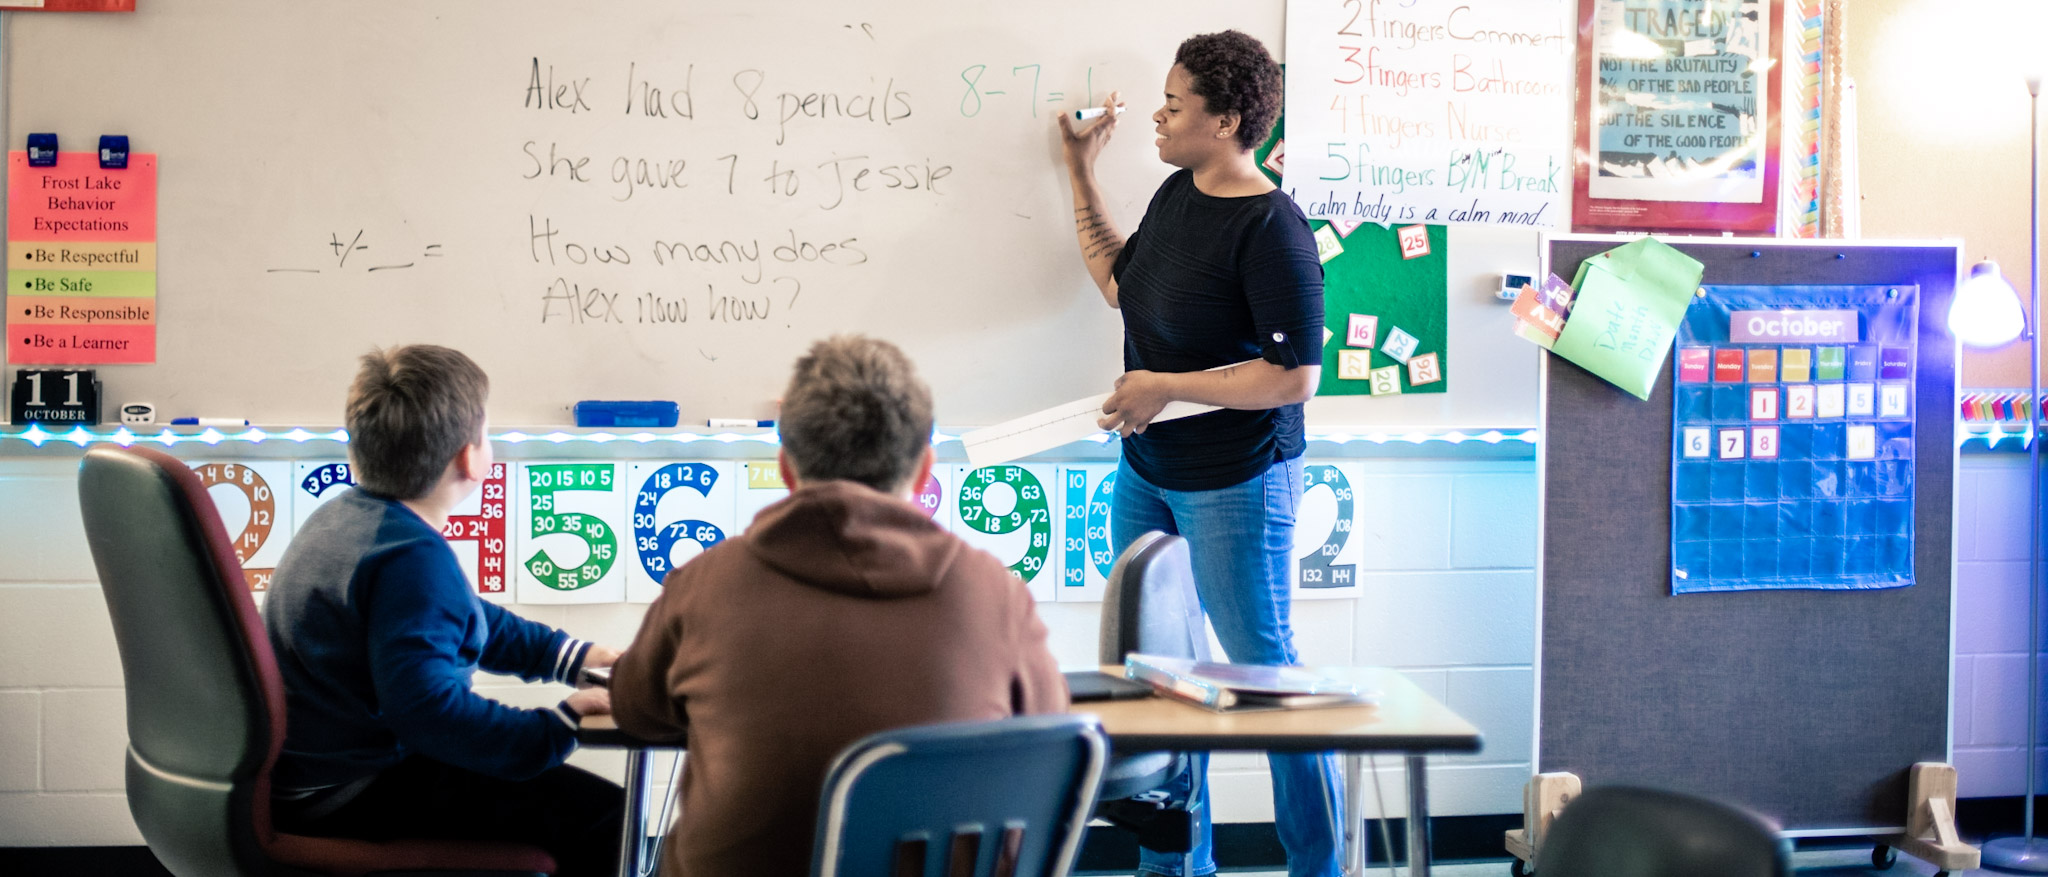 Alex had 8 pencils 8-7=1
She gave 7 to Jessie
__ +/- __ = How many does
Alex now how?
Frost Lake
Behavior
Expectations
•Be Respectful
•Be Safe
•Be Responsible
•Be a Learner
11
OCTOBER
2 fingers Comment
3 fingers Bathroom
4 fingers Nurse
5 fingers B/M Break
A calm body is a calm mind...
TRAGEDY
NOT THE BRUTALITY
OF THE BAD PEOPLE
BUT THE SILENCE
OF THE GOOD PEOPLE
28
25
16
29
27
20
26
Date
Month
Day
October
Sunday Monday Tuesday Saturday
1 2 5 4
6 7 8
4 6 8
10
12
14
24
3 6 9
28
32
36
20 24
40
44
48
20 15 10 5
25
30 35 40
45
60 55 50
18 12 6
24
30
36 72 66
42
7 14
40
45 54
36 63
27 18 9 72
81
90
10
20 70
30 60
40 50
84
96
108
120
132 144